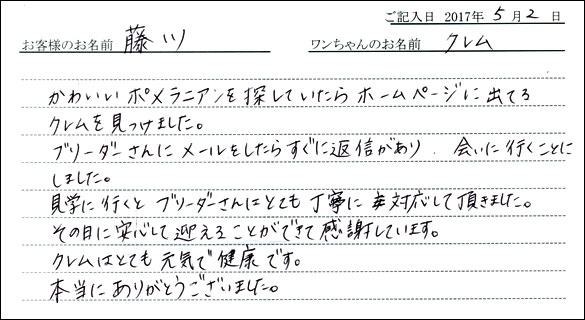 ご記入日 2017年 5月 2日
お客様のお名前 藤川 ワンちゃんのお名前 クレム
かわいいポメラニアンを探していたらホームページに出てる
クレムを見つけました。
ブリーダーさんにメールをしたらすぐに返信があり、会いに行くことに
しました。
見学に行くとブリーダーさんはとても丁寧に対応して頂きました。
その日に安心して迎えることができて感謝しています。
クレムはとても元気で健康です。
本当にありがとうございました。